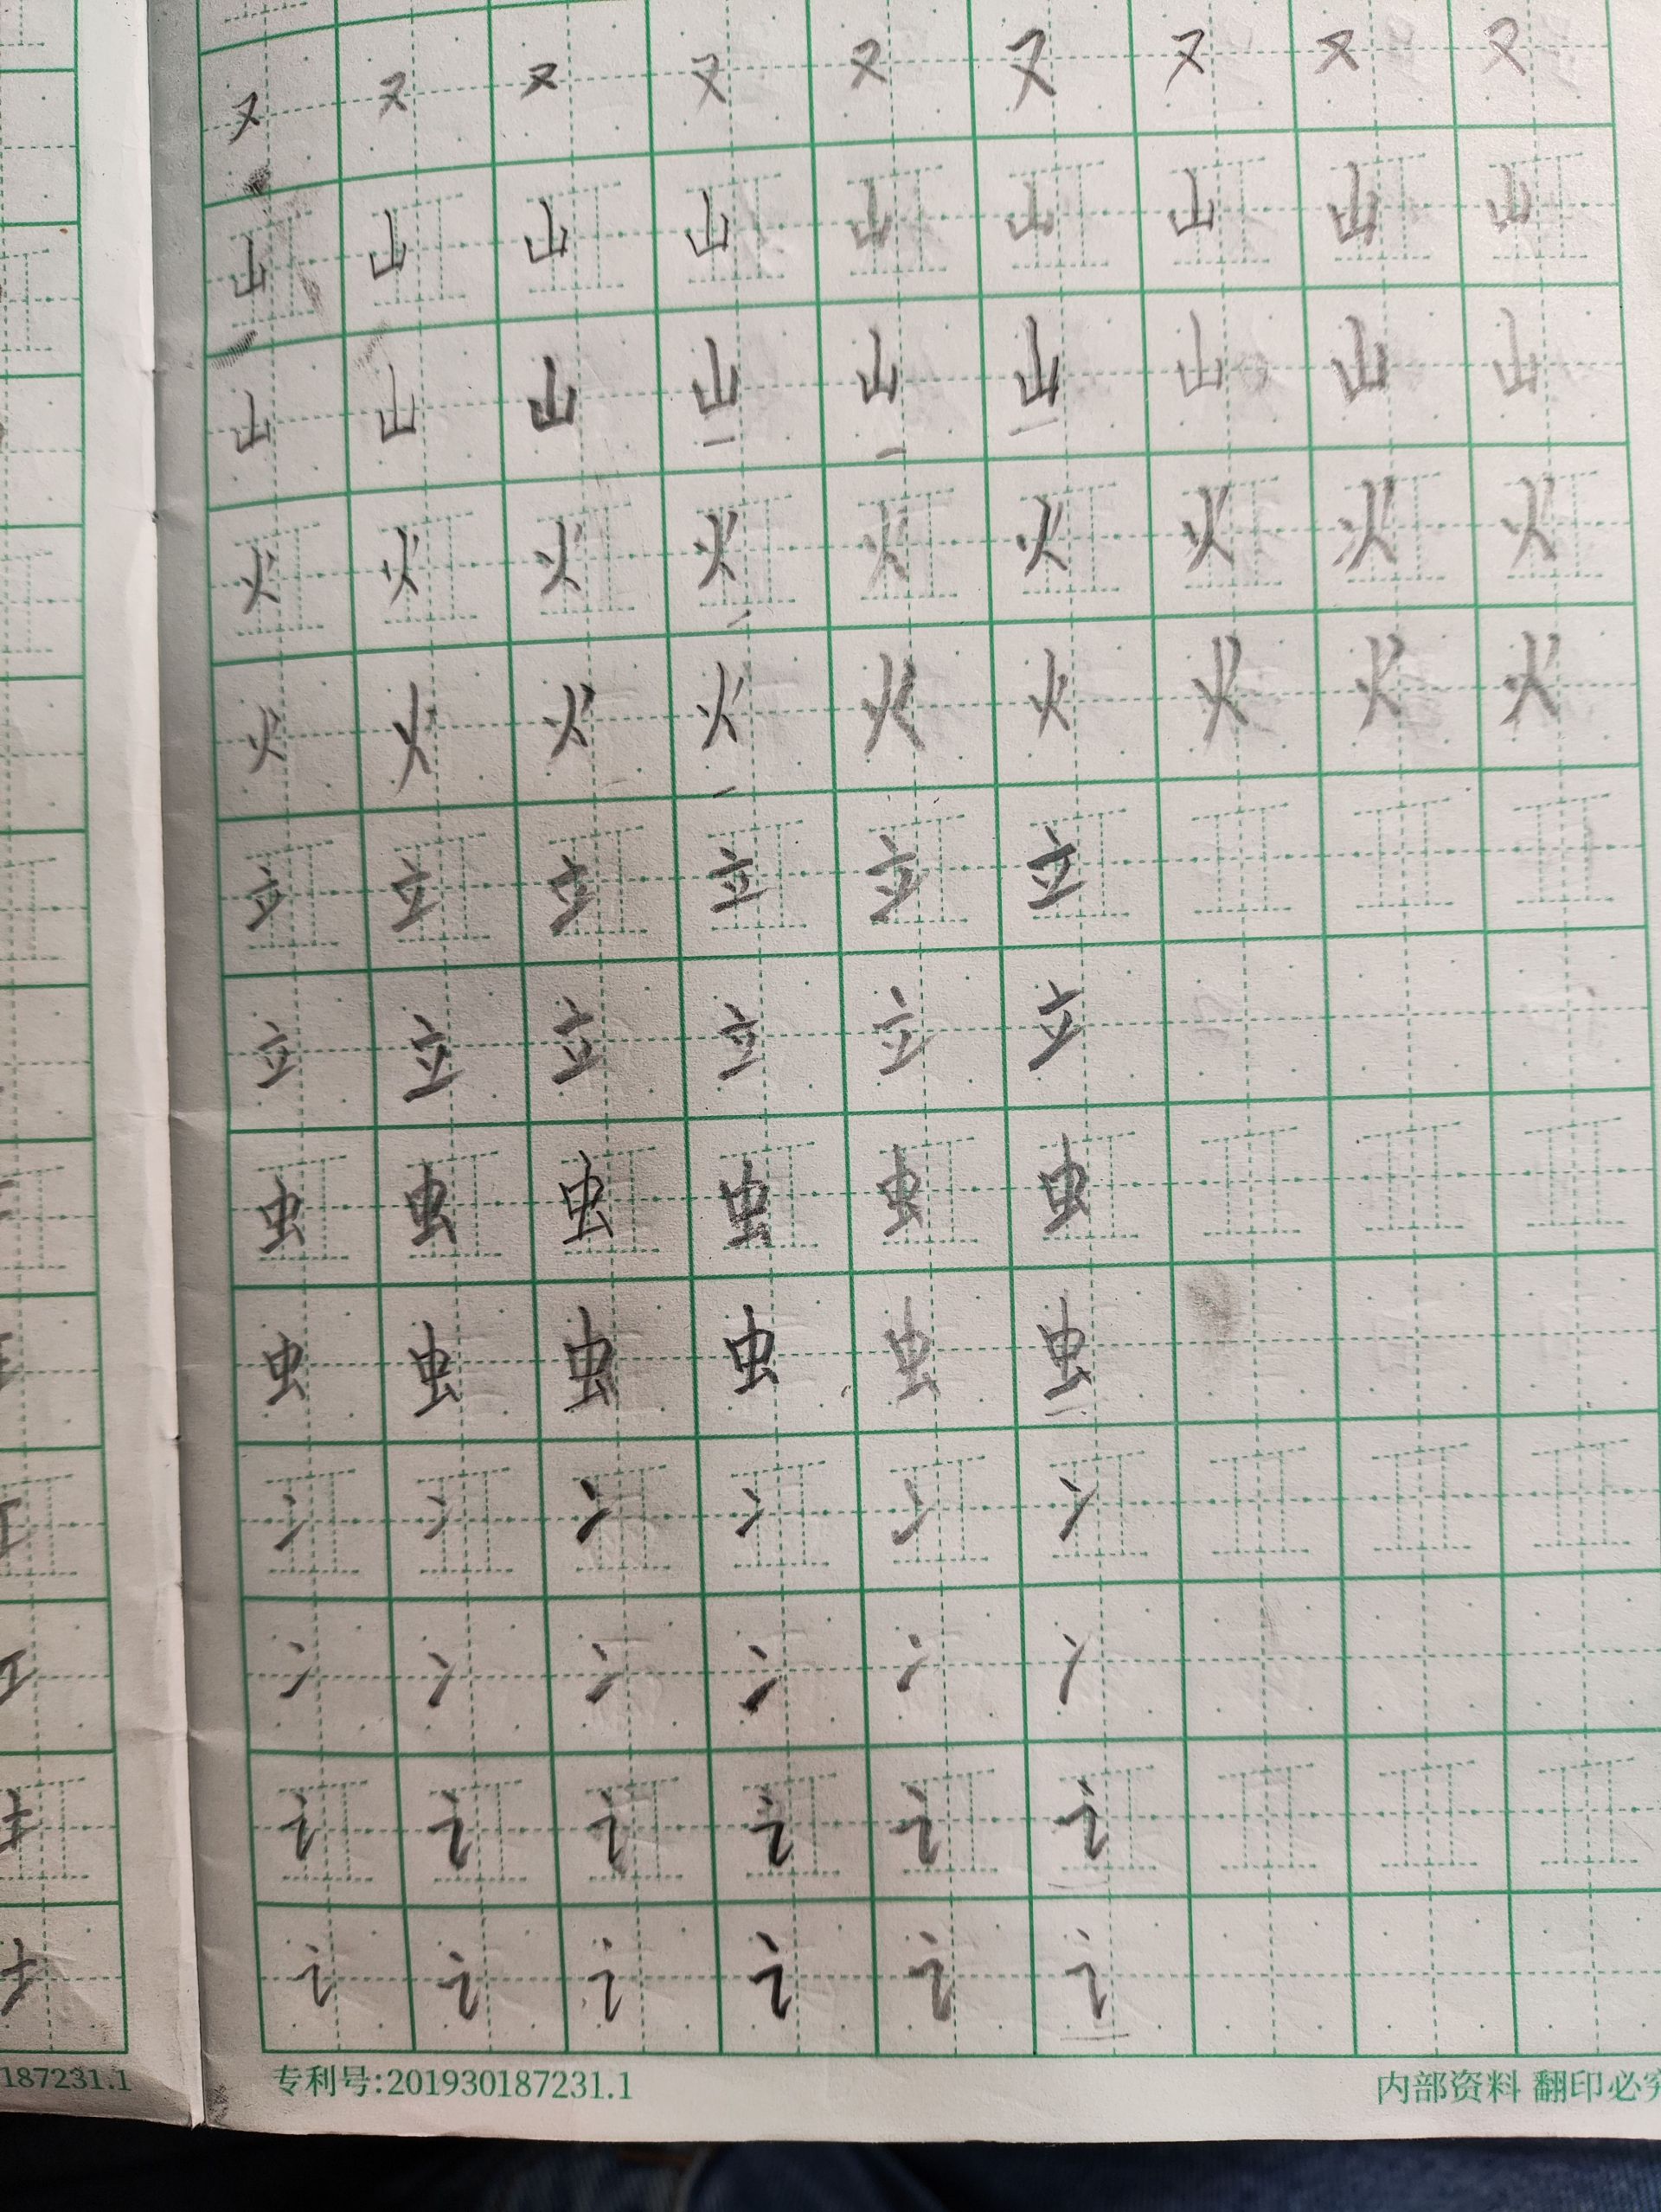 又 又 又 又 又 又 又 又 又
山 山 山 山 山 山 山 山 山
山 山 山 山 山 山 山 山 山
火 火 火 火 火 火 火 火 火
火 火 火 火 火 火 火 火 火
立 立 立 立 立 立
立 立 立 立 立 立
虫 虫 虫 虫 虫 虫
虫 虫 虫 虫 虫 虫
冫 冫 冫 冫 冫 冫
冫 冫 冫 冫 冫 冫
讠 讠 讠 讠 讠 讠
讠 讠 讠 讠 讠 讠
187231.1 专利号:201930187231.1 内部资料 翻印必究